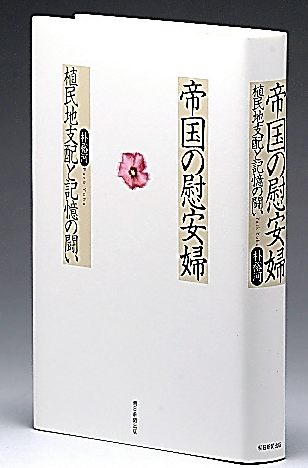 帝国の慰安婦
植民地支配と記憶の闘い
朴裕河
Park Yuha
朝日新聞出版
帝国の慰安婦
植民地支配と記憶の闘い
朴裕河
Park Yuha
朝日新聞出版